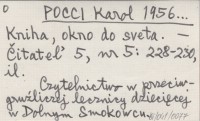 0
POCCI Karol 1956...
Kniha, okno do sveta. —
Čitateľ 5, nr 5: 228-230,
il.
Czytelnictwo w przeciw-
gruźliczej lecznicy dziecięcej
w Dolnym Smokowcu.